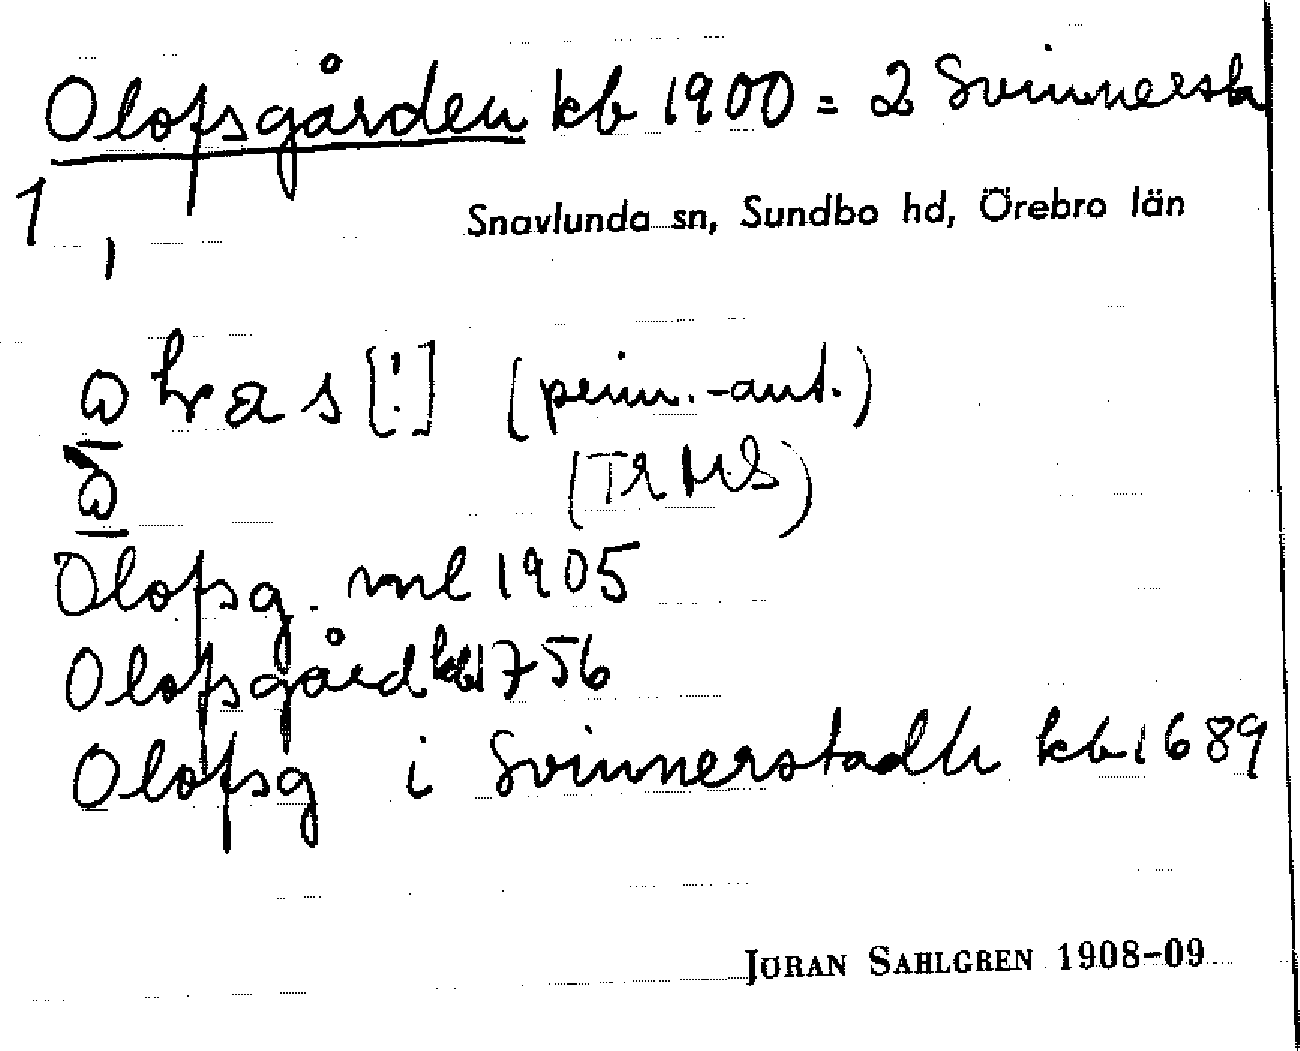 Olofsgården kb 1900 = 2 Svinnersta
1,
Snavlunda sn, Sundbo hd, Örebro län
[!] (prim.-ant.)
(TRMS)
Olofsg. ml 1905
Olofsgård kb 1756
Olofsg i Svinnerstadh kb 1689
JÖRAN SAHLGREN 1908-09